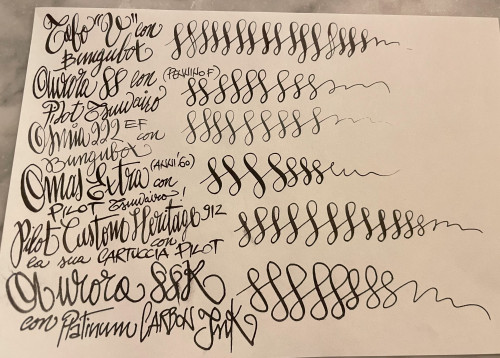 "V" con
Bungubox
Aurora 88 con (PENNINO F)
Pilot Tsuwairo
Omnia 222 EF con
Bungubox
Omas Extra (ANNI '60) con
PILOT Tsuwairo!
Pilot Custom Heritage 912 con
la sua CARTUCCIA PILOT
Aurora 88K
con Platinum CARBON Ink